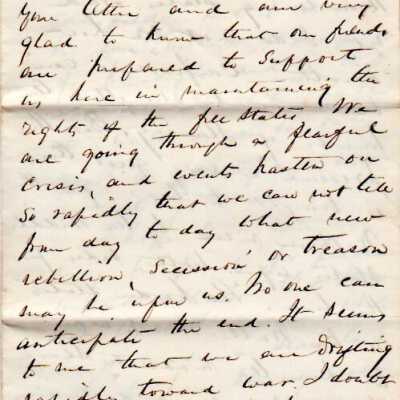 your letter and am very
glad to know that our friends
are prepared to support
us here in maintaining the
rights of the free States, We
are going through a fearful
crisis, and events hasten on
so rapidly that we can not tell
from day to day what new
rebellion, Secession or treason
may be upon us. No one can
anticipate the end. It seems
to me that we are drifting
rapidly toward war, I doubt